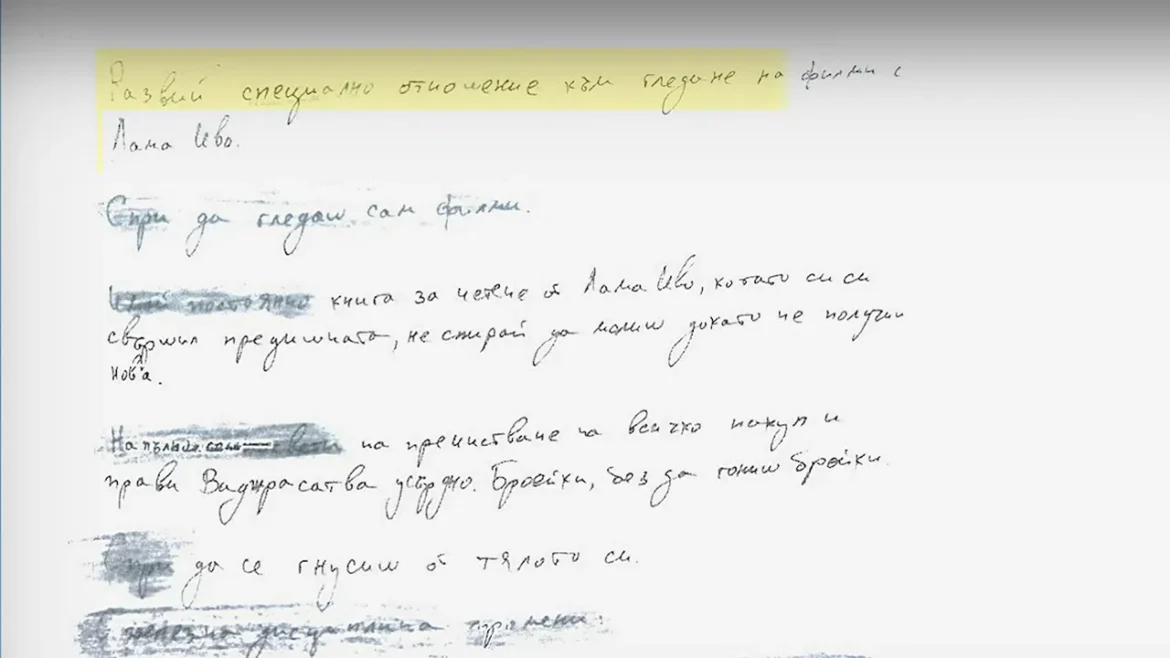 Развий специално отношение към гледане на филми с
Лама Иво.
Спри да гледаш сам филми.
Имай постоянно книга за четене от Лама Иво, когато си си
свършил предишната, не спирай да молиш докато не получиш
нова.
на пречистване на всичко накуп и
прави Ваджрасатва усърдно. Бройки, без да гониш бройки.
Спри да се гнусиш от тялото си.
С желязна дисциплина промени